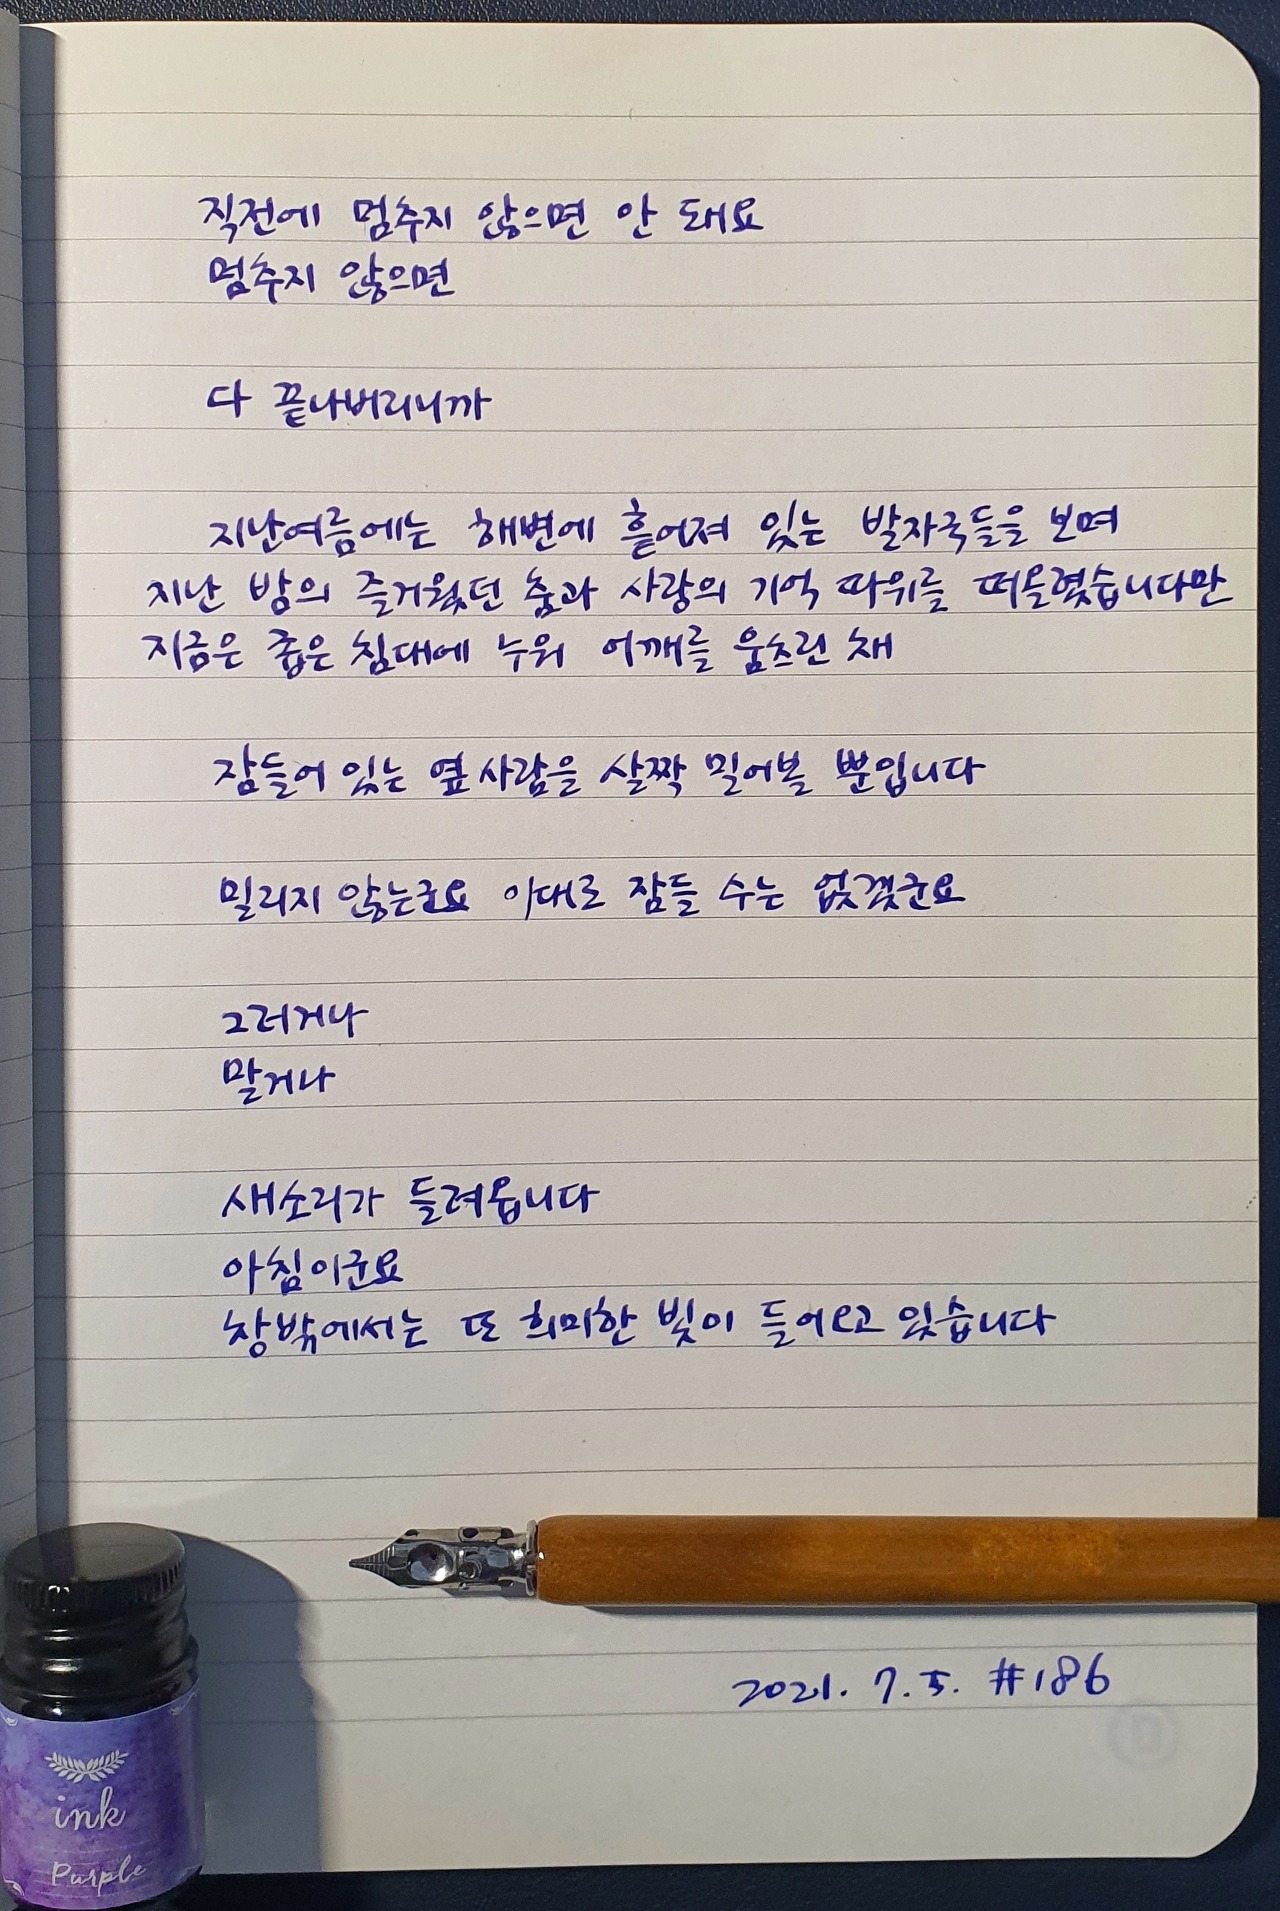 직전에 멈추지 않으면 안 돼요
멈추지 않으면
다 끝나버리니까
지난여름에는 해변에 흩어져 있는 발자국들을 보며
지난 밤의 즐거웠던 춤과 사랑의 기억 따위를 떠올렸습니다만
지금은 좁은 침대에 누워 어깨를 움츠린 채
잠들어 있는 옆 사람을 살짝 밀어볼 뿐입니다
밀리지 않는군요 이대로 잠들 수는 없겠군요
그러거나
말거나
새소리가 들려옵니다
아침이군요
창밖에서는 또 희미한 빛이 들어오고 있습니다
2021. 7. 5. #186
ink
Purple